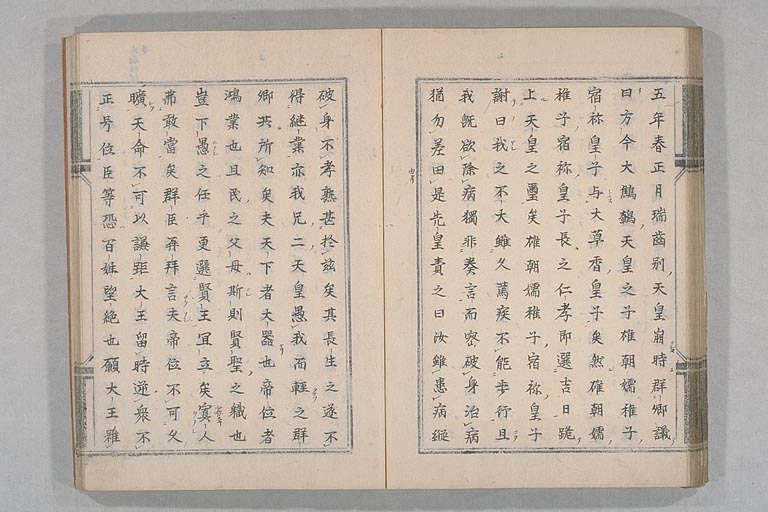 五年春正月瑞齒別天皇崩時群卿議
曰方今大鷦鷯天皇之子雄朝嬬稚子
宿祢皇子与大草香皇子矣然雄朝嬬
稚子宿祢皇子長之仁孝即選吉日跪
上天皇之璽矣雄朝嬬稚子宿祢皇子
謝曰我之不大雖久篤疾不能歩行且
我既欲除病獨非奏言而密破身治病
猶勿差田是先皇責之曰汝雖患病縦
破身不孝孰甚於茲矣其長生之遂不
得継業亦我兄二天皇愚我而輕之群
卿共所知矣夫天下者大器也帝位者
鴻業也且民之父母斯則賢聖之軄也
豈下愚之任乎更選賢王冝立矣寡人
弗敢當矣群臣再拜言夫帝位不可久
曠天命不可以謙距大王留時逆衆不
正号位臣等恐百姓望絶也願大王雖